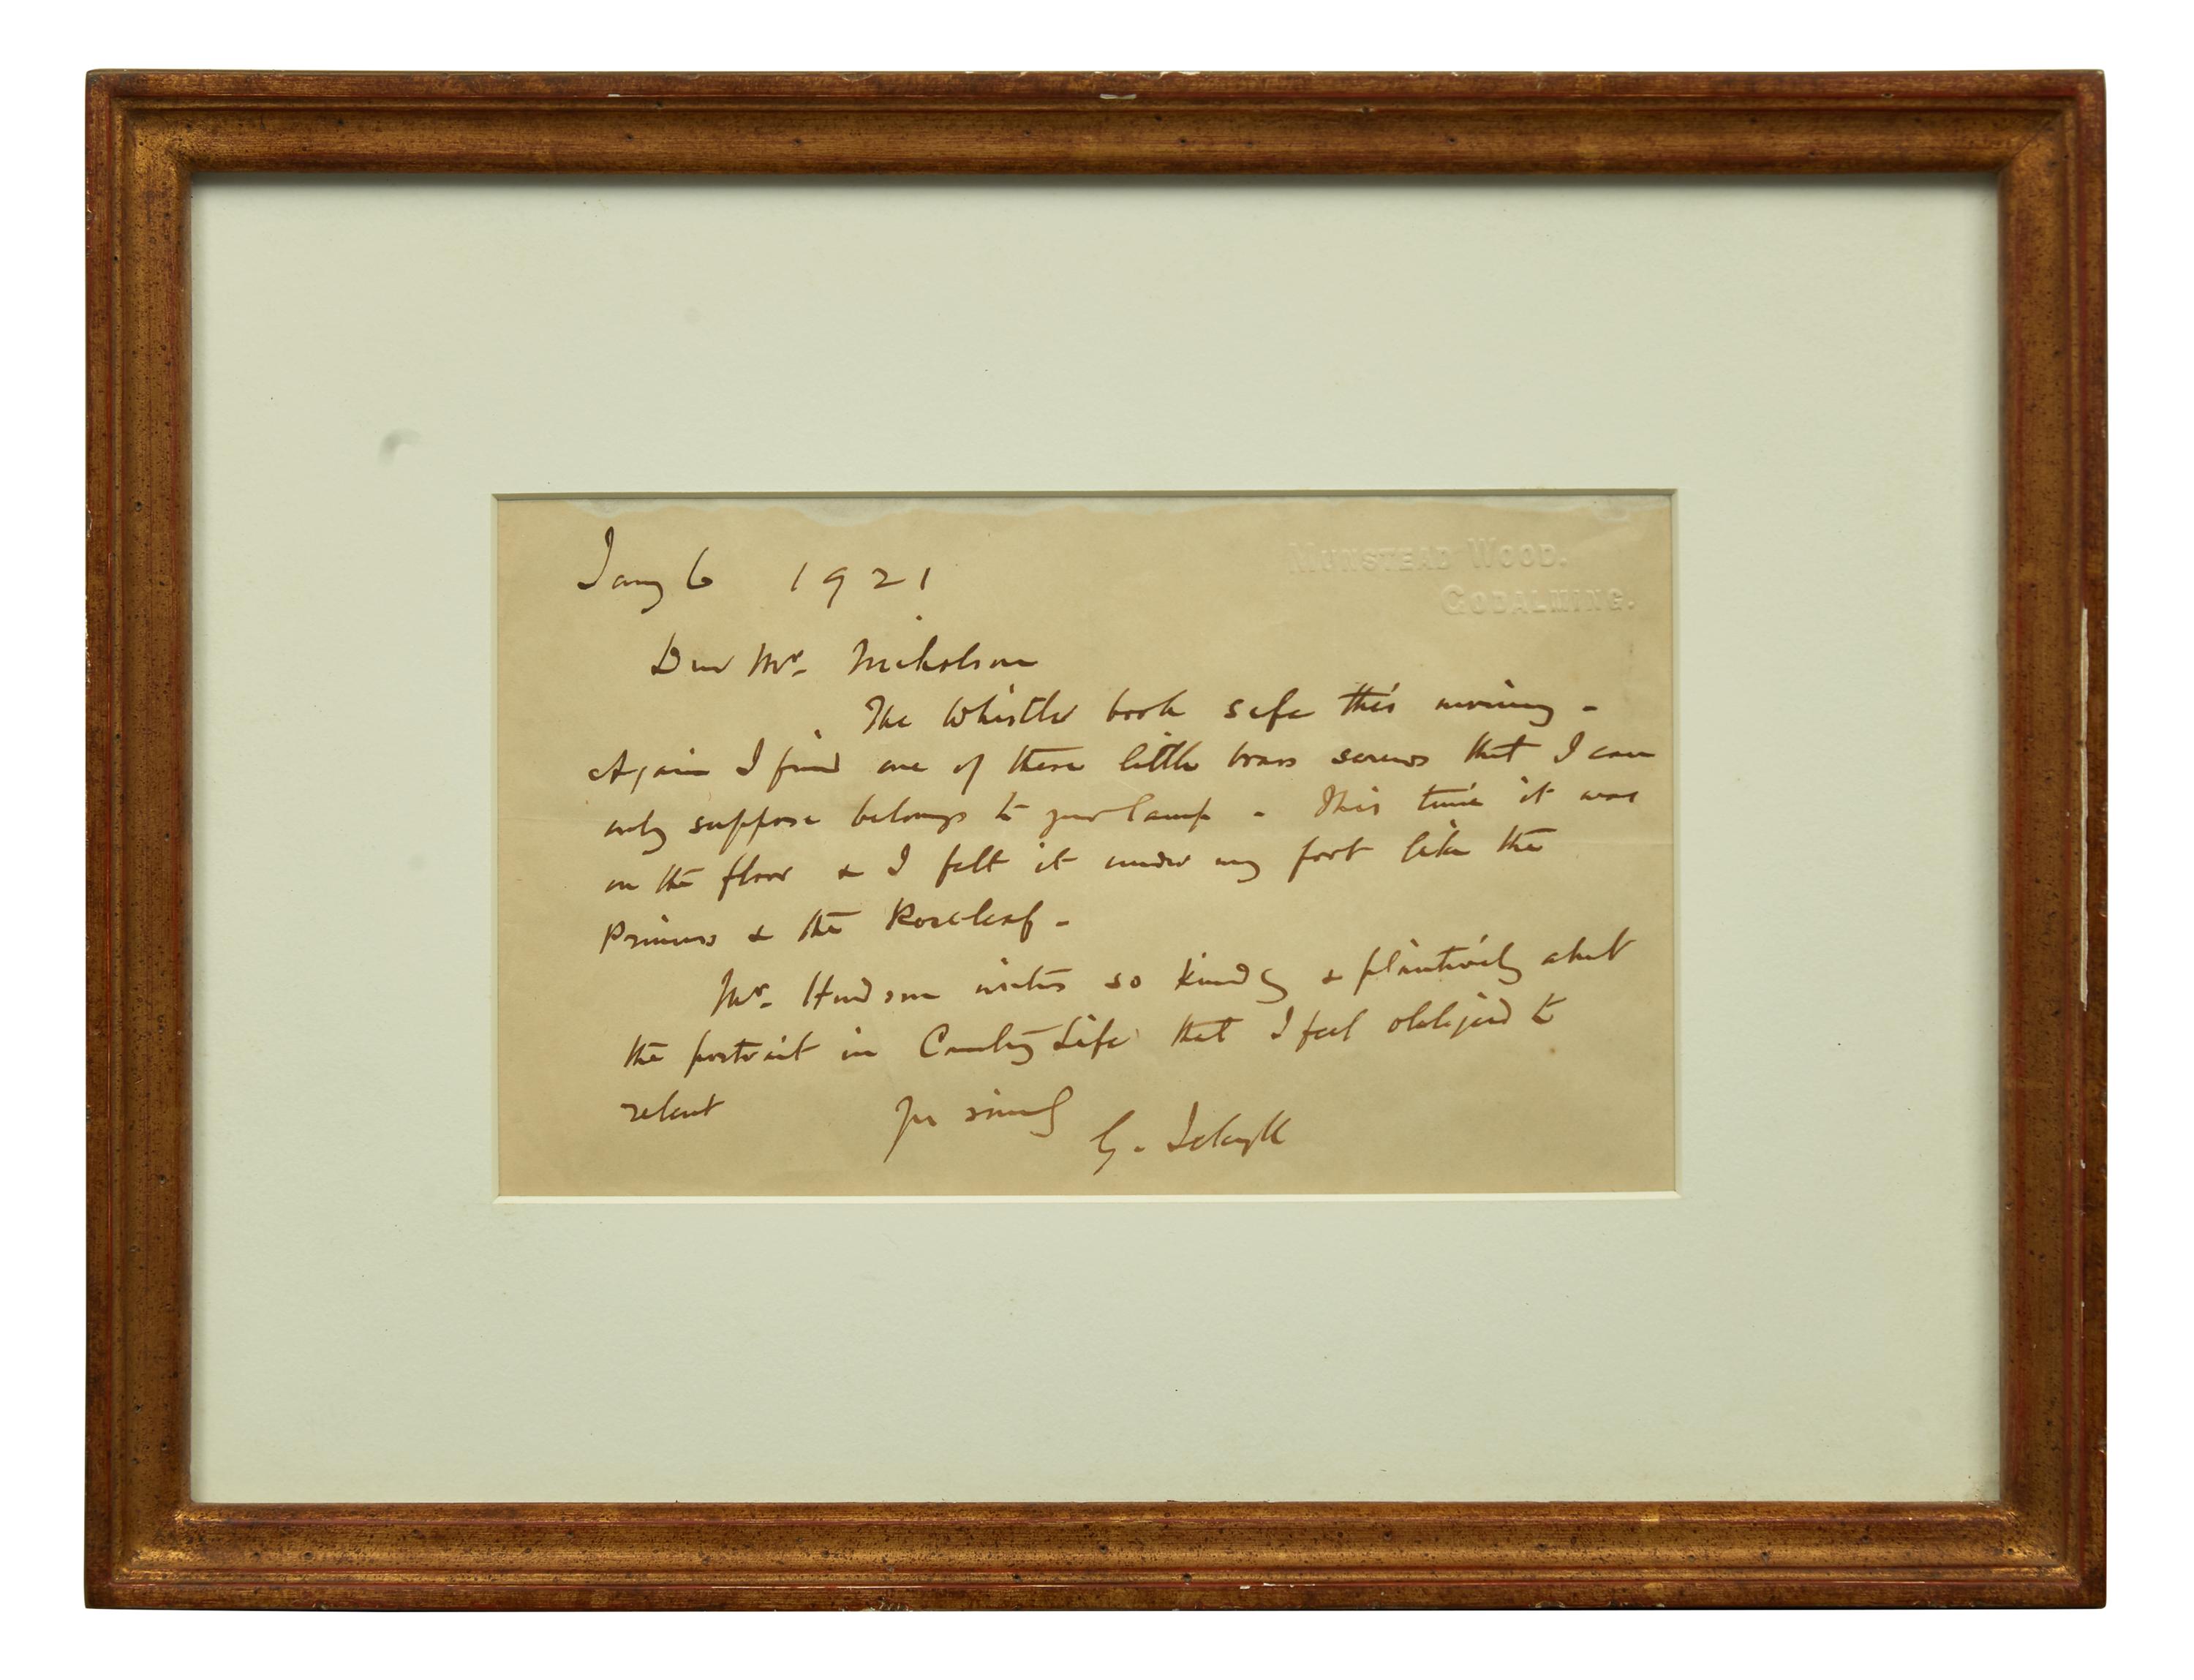 Jany 6 1921
MUNSTEAD WOOD.
GODALMING.
Dear Mr. Nicholson
The Whistler book safe this morning -
Again I find one of these little brass screws that I can
only suppose belongs to your lamp - This time it was
on the floor & I felt it under my foot like the
Princess & the Roseleaf -
Mr. Hudson writes so kindly & plaintively about
the portrait in Country Life that I feel obliged to
relent
Yrs sincely
G. Jekyll